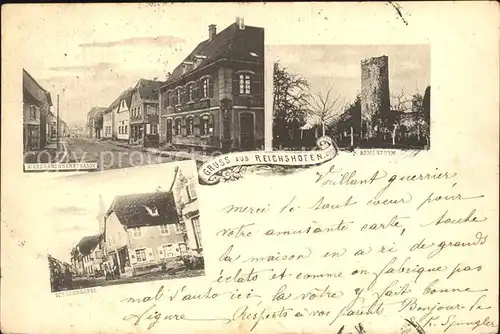 NIEDERBRONNERSTRASSE
RÖMERTURM
GRUSS AUS REICHSHOFEN
Vaillant guerrier
Merci de tout cœur pour
votre amusante carte, toute
la maison en a ri de grands
éclats et comme on fabrique pas
mal d'auto ici, la vôtre y fait bonne
figure. Respects à vos parents Bonjour de
Spengler